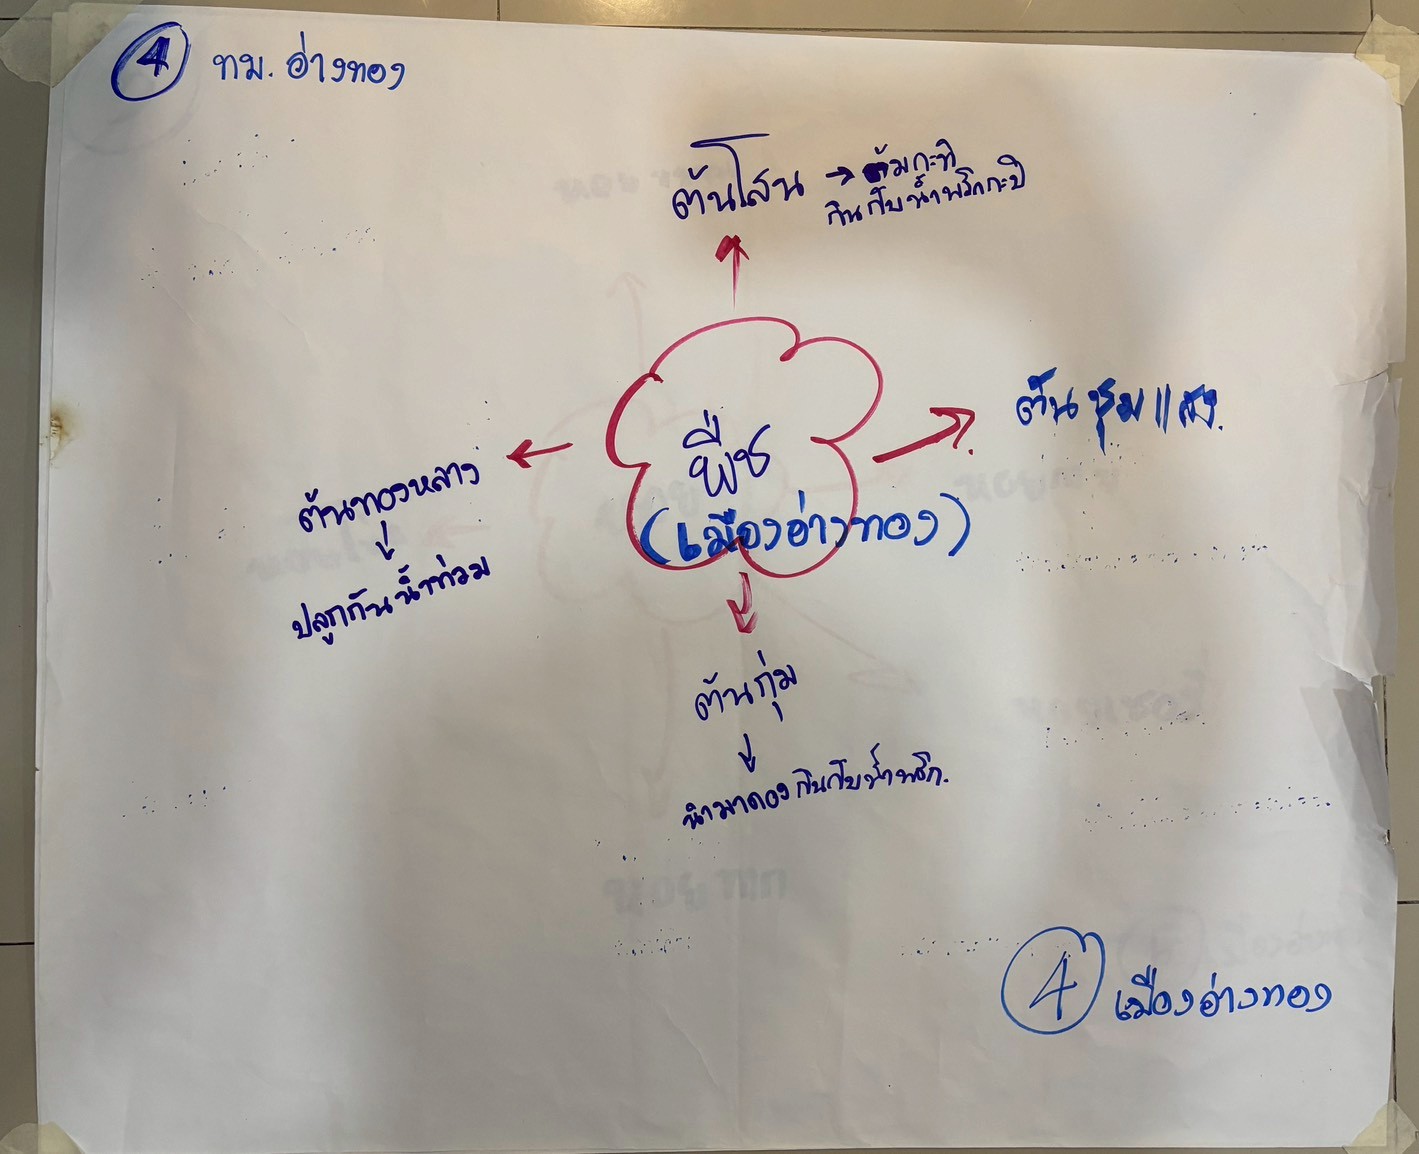 4 ทม. อ่างทอง
ต้นโสน → ต้มกะทิ
กินกับน้ำพริกกะปิ
ต้นชุมแสง.
พืช
(เมืองอ่างทอง)
ต้นทองหลาง
ปลูกกันน้ำท่วม
ต้นกุ่ม
นำมาดองกินกับน้ำพริก.
4 เมืองอ่างทอง